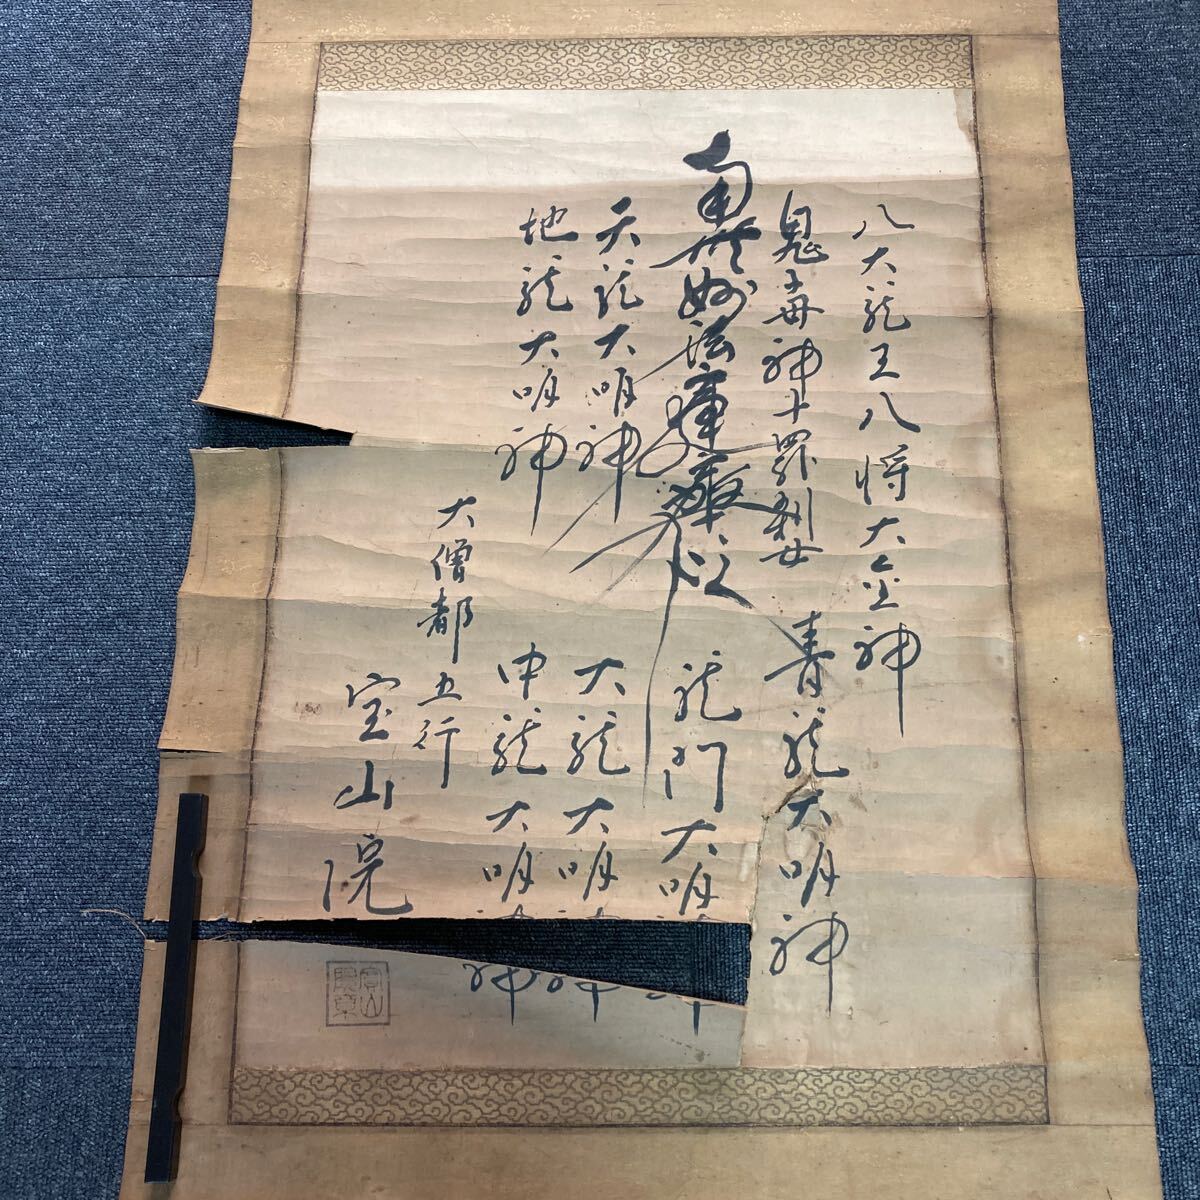 八大龍王八将大金神
鬼子母神十羅刹女
青龍大明神
南無妙法蓮華経
龍門大明神
天龍大明神
大龍大明神
地龍大明神
中龍大明神
大僧都五行
宝山院